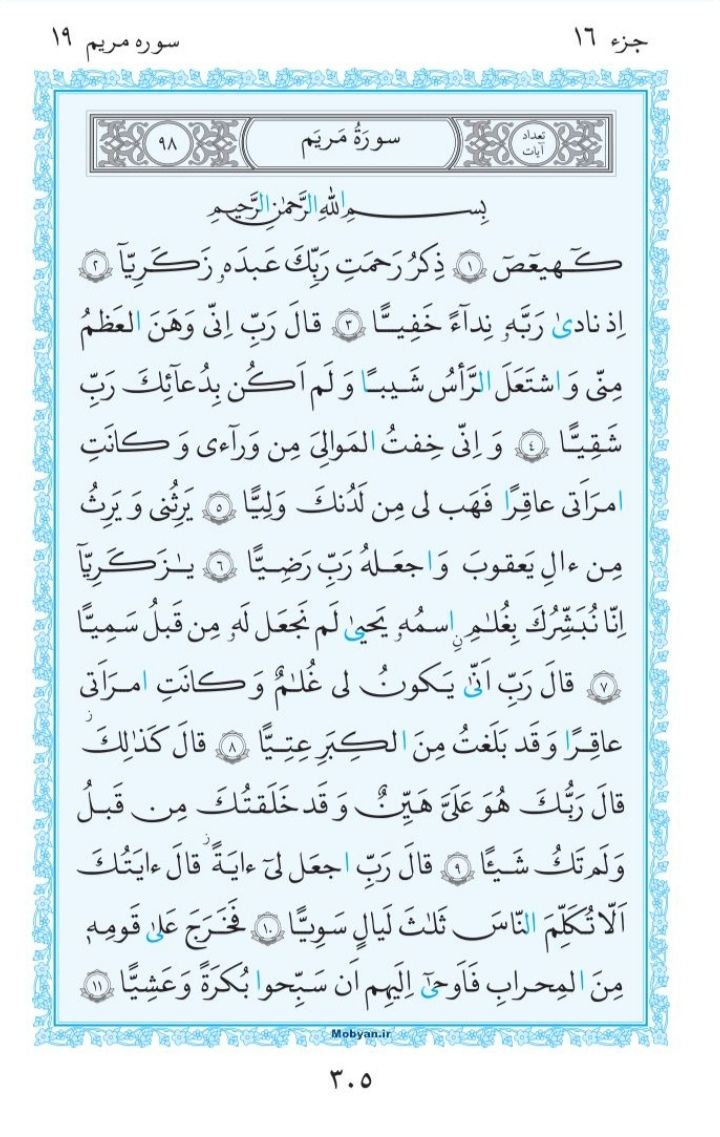 جزء ١٦
سوره مريم ١٩
تعداد آيات
سورَةُ مَريَم
٩٨
بِسمِ اللهِ الرَّحمٰنِ الرَّحيمِ
كـهيعص ١ ذِكرُ رَحمَتِ رَبِّكَ عَبدَه زَكَرِيّآ ٢
اِذ نادىٰ رَبَّه نِدآءً خَفِيًّا ٣ قالَ رَبِّ اِنّى وَهَنَ العَظمُ
مِنّى وَ اشتَعَلَ الرَّأسُ شَيبًا وَ لَم اَكُن بِدُعآئِكَ رَبِّ
شَقِيًّا ٤ وَ اِنّى خِفتُ المَوالِىَ مِن وَرآءى وَ كانَتِ
امرَاَتى عاقِرًا فَهَب لى مِن لَدُنكَ وَلِيًّا ٥ يَرِثُنى وَ يَرِثُ
مِن ءالِ يَعقوبَ وَ اجعَلهُ رَبِّ رَضِيًّا ٦ يـٰزَكَرِيّآ
اِنّا نُبَشِّرُكَ بِغُلـٰمٍ اسمُه يَحيىٰ لَم نَجعَل لَه مِن قَبلُ سَمِيًّا
٧ قالَ رَبِّ اَنّىٰ يَكونُ لى غُلـٰمٌ وَ كانَتِ امرَاَتى
عاقِرًا وَ قَد بَلَغتُ مِنَ الكِبَرِ عِتِيًّا ٨ قالَ كَذٰلِكَ
قالَ رَبُّكَ هُوَ عَلَىَّ هَيِّنٌ وَ قَد خَلَقتُكَ مِن قَبلُ
وَ لَم تَكُ شَيئًا ٩ قالَ رَبِّ اجعَل لى ءايَةً قالَ ءايَتُكَ
اَلّا تُكَلِّمَ النّاسَ ثَلـٰثَ لَيالٍ سَوِيًّا ١٠ فَخَرَجَ عَلىٰ قَومِه
مِنَ المِحرابِ فَاَوحىٰ اِلَيهِم اَن سَبِّحوا بُكرَةً وَ عَشِيًّا ١١
Mobyan.ir
٣٠٥